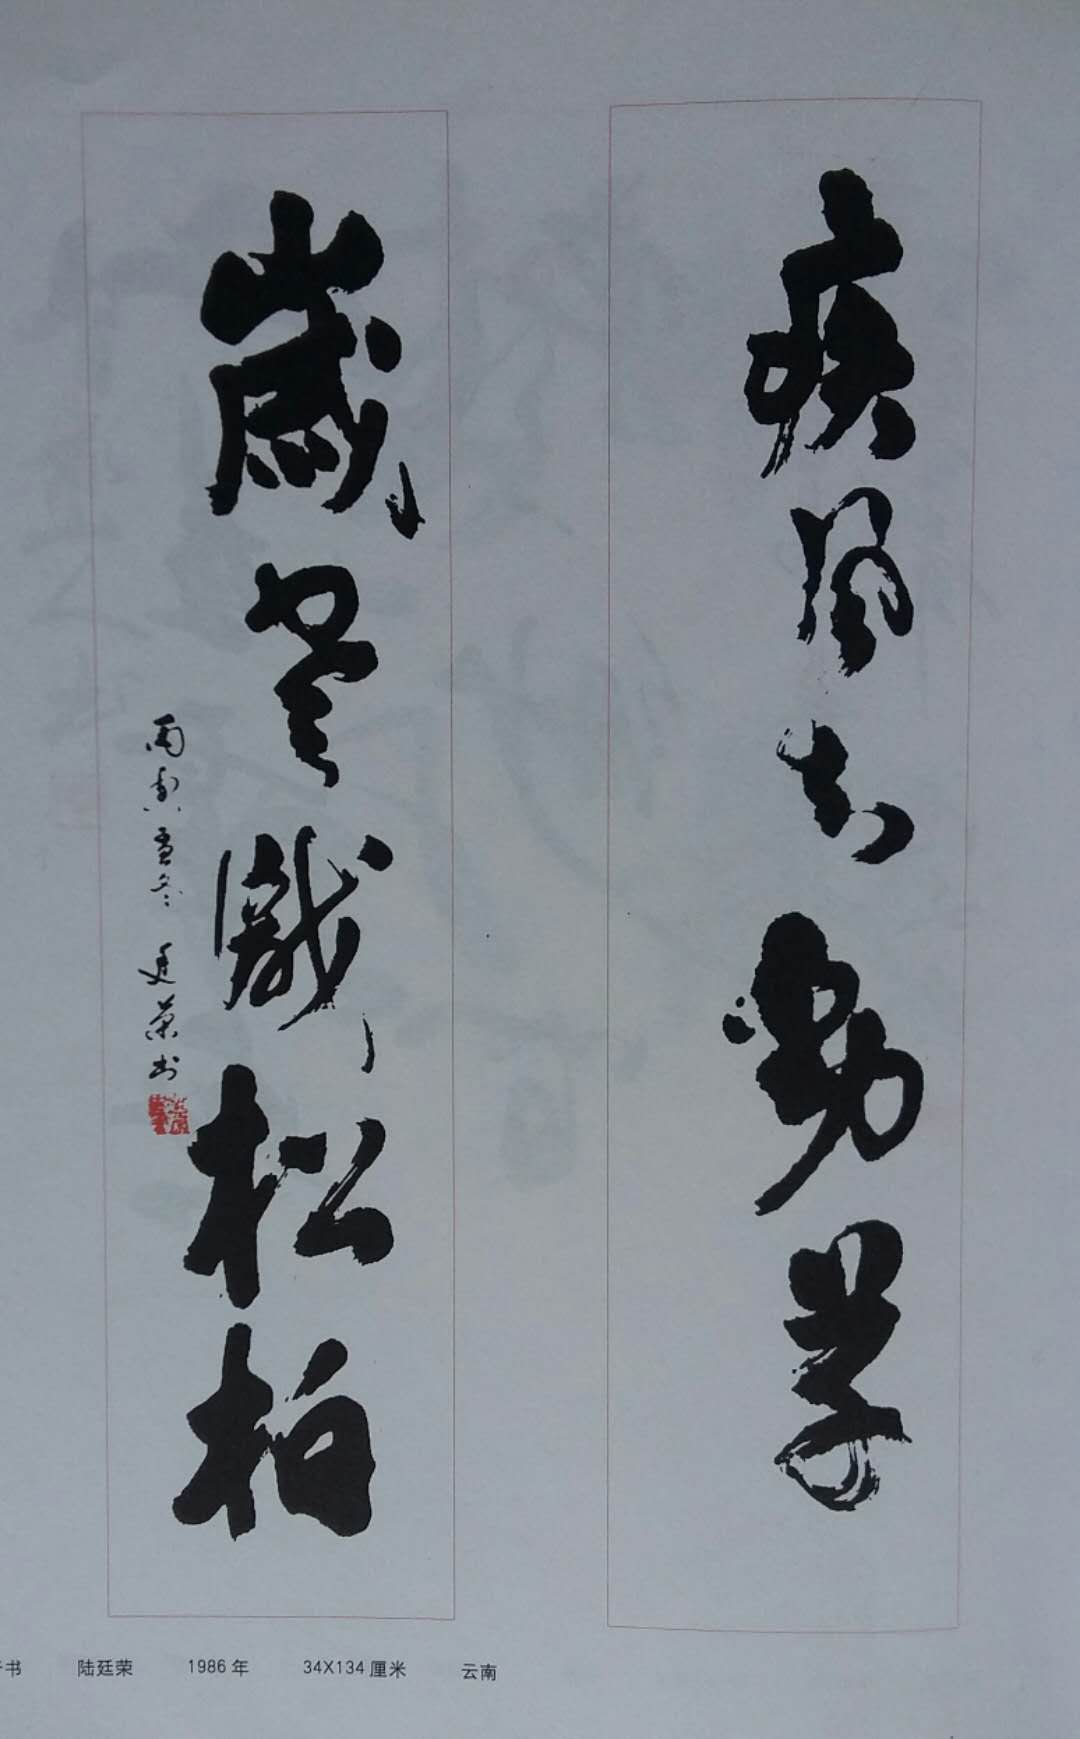 疾風知勁草
歲寒識松柏
丙寅孟冬 廷荣书
书 陆廷荣 1986年 34X134厘米 云南